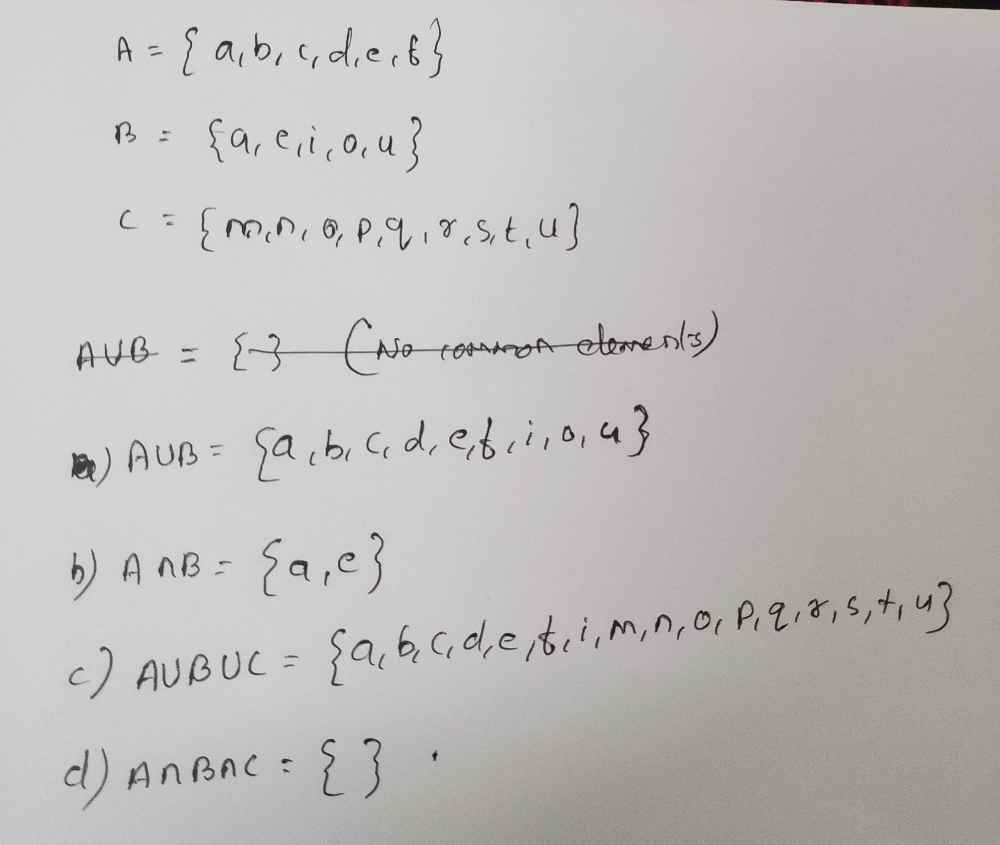 A = {a, b, c, d, e, f}
B = {a, e, i, o, u}
C = {m, n, o, p, q, r, s, t, u}
AUB = {} (No common elements)
a) AUB = {a, b, c, d, e, f, i, o, u}
b) A∩B = {a, e}
c) AUBUC = {a, b, c, d, e, f, i, m, n, o, p, q, r, s, t, u}
d) A∩B∩C = { }